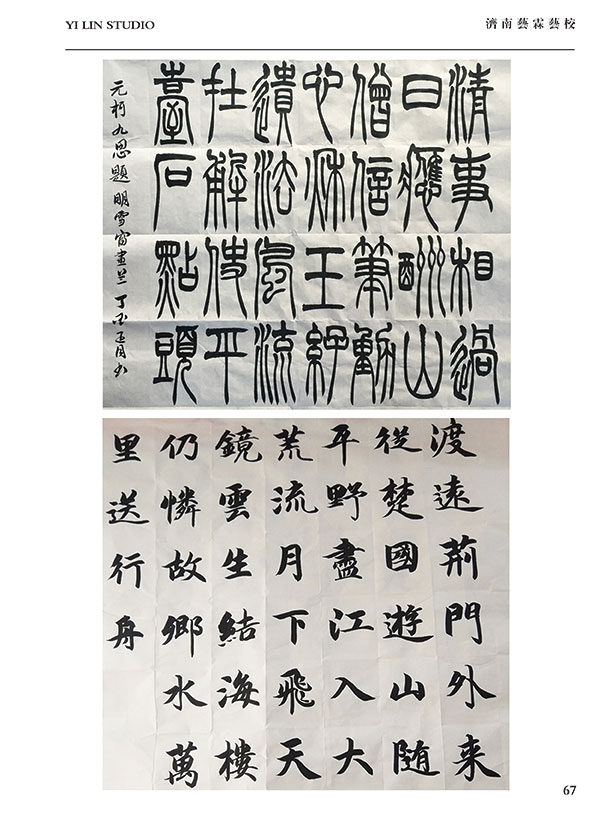 YI LIN STUDIO
濟南藝霖藝校
清事相過
日應酬山
僧信筆動
秌王
遺法風流
在解使平
臺石點頭
元柯九思題明雪窗畫兰丁酉正月书
渡遠荊門外来
從楚國遊山随
平野盡江入大
荒流月下飛天
鏡雲生結海樓
仍憐故鄉水萬
里送行舟
67